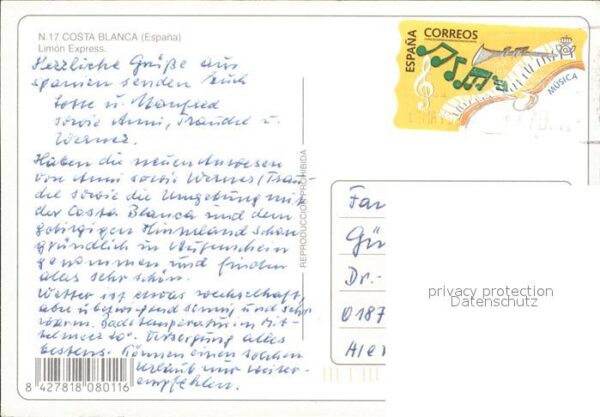 N.17 COSTA BLANCA (España)
Limón Express.
Herzliche Grüße aus
Spanien senden Euch
Lotte u. Manfred
sowie Anni, Traudel u.
Werner.
Haben die neuen Anwesen
von Anni sowie Werner/Trau-
del sowie die Umgebung mit
der Costa Blanca und dem
gebirgigen Hinnland schon
gründlich in Augenschein
genommen und finden
alles sehr schön.
Wetter ist etwas wechselhaft,
aber überwiegend sonnig und sehr
warm. Badetemperatur im Mit-
telmeer 20°. Verpflegung alles
bestens. Können einen solchen
Urlaub nur weiter-
empfehlen.
8 427818 080116
REPRODUCCION PROHIBIDA
ESPAÑA
CORREOS
MÚSICA
Fam
Gün
Dr.-
0187
privacy protection
Datenschutz